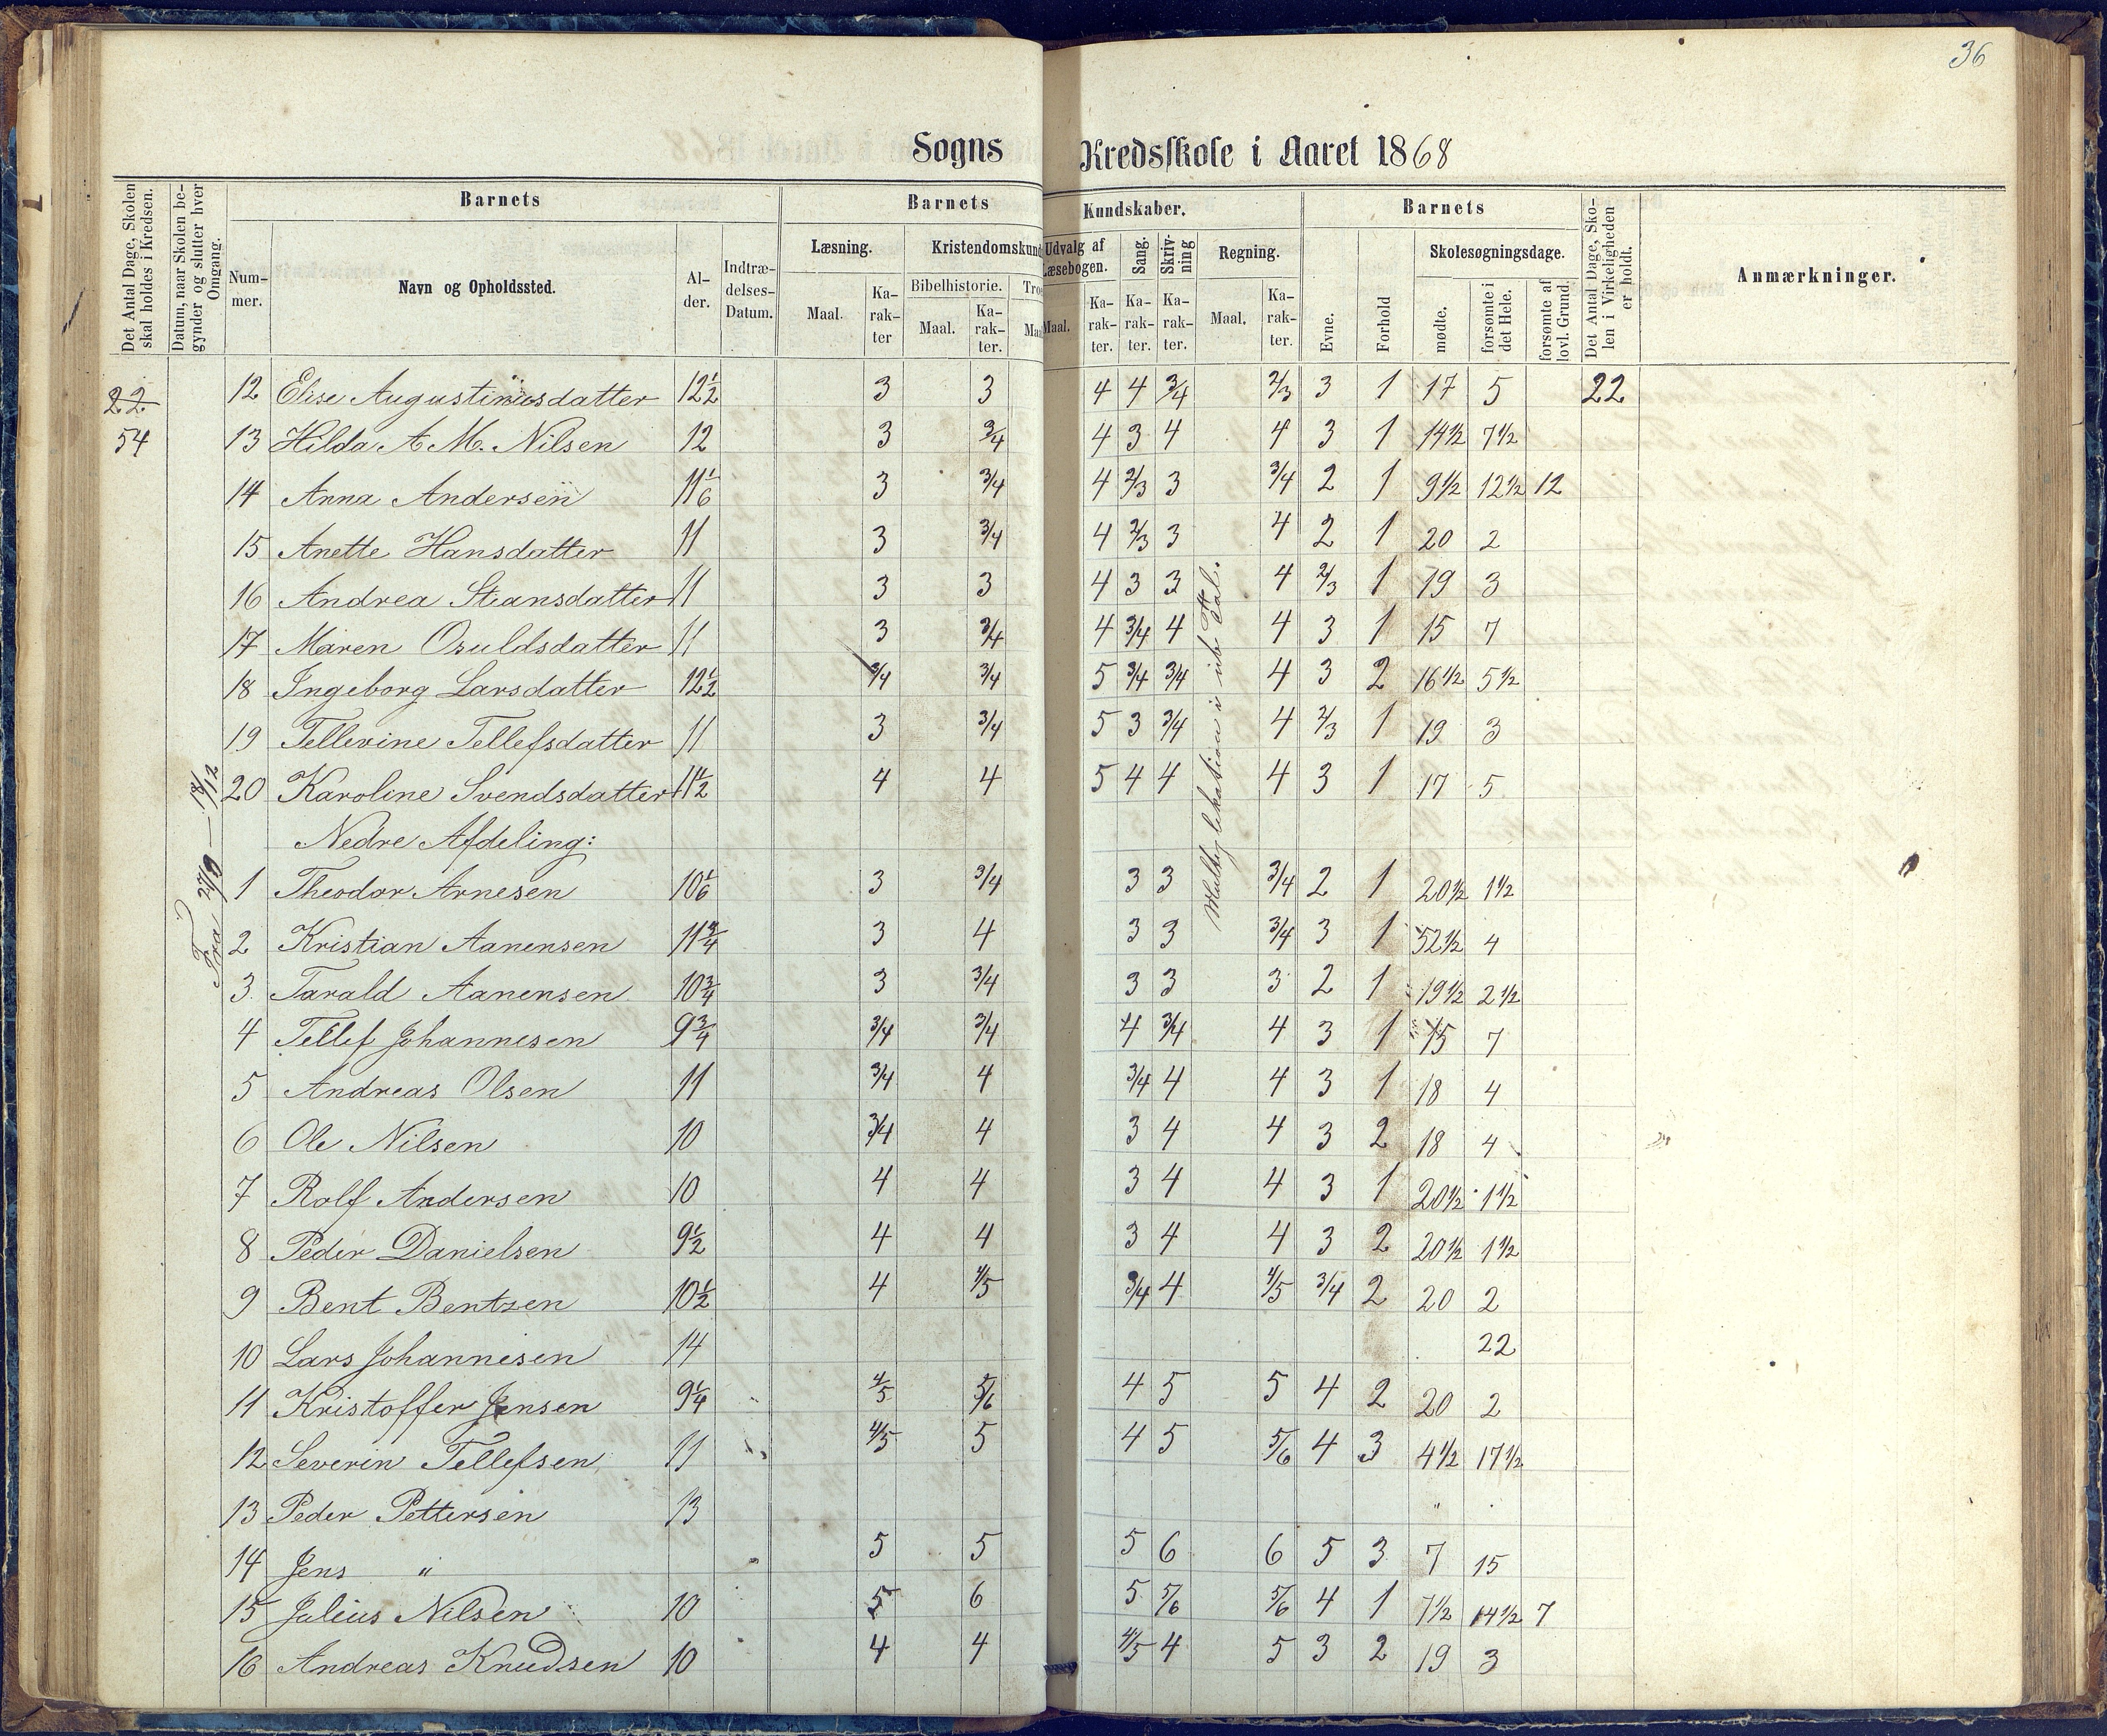 36
Sogns Kredsskole i Aaret 1868
Det Antal Dage, Skolen skal holdes i Kredsen.
Datum, naar Skolen begynder og slutter hver Omgang.
Barnets
Barnets
Kundskaber.
Barnets
Det Antal Dage, Skolen i Virkeligheden er holdt.
Anmærkninger.
Nummer.
Navn og Opholdssted.
Alder.
Indtrædelses-Datum.
Læsning.
Kristendomskund
Udvalg af Læsebogen.
Sang.
Skrivning
Regning.
Evne.
Forhold
Skolesøgningsdage.
Maal.
Karakter
Bibelhistorie.
Maal.
Karakter.
Troe
Maal
Maal.
Karakter.
Karakter.
Karakter.
Maal.
Karakter.
mødte.
forsømte i det Hele.
forsømte af lovl. Grund.
22
54
Fra 27/9 — 18/12
12 Elise Augustinusdatter 12 1/2 3 3 4 4 3/4 2/3 3 1 17 5 22
13 Hilda A. M. Nilsen 12 3 3/4 4 3 4 4 3 1 14 1/2 7 1/2
14 Anna Andersen 11 1/6 3 3/4 4 2/3 3 3/4 2 1 9 1/2 12 1/2 12
15 Anette Hansdatter 11 3 3/4 4 2/3 3 4 2 1 20 2
16 Andrea Stiansdatter 11 3 3 4 3 3 4 2/3 1 19 3
17 Maren Osuldsdatter 11 3 3/4 4 3/4 4 4 3 1 15 7
18 Ingeborg Larsdatter 12 1/2 3/4 3/4 5 3/4 3/4 4 3 2 16 1/2 5 1/2
19 Tellevine Tellefsdatter 11 3 3/4 5 3 3/4 4 2/3 1 19 3
20 Karoline Svendsdatter 11 1/2 4 4 5 4 4 4 3 1 17 5
Multiplekation i Tal.
Nedre Afdeling:
1 Theodor Arnesen 10 1/6 3 3/4 3 3 3/4 2 1 20 1/2 1 1/2
2 Kristian Aanensen 11 3/4 3 4 3 3 3/4 3 1 52 1/2 4
3 Tarald Aanensen 10 3/4 3 3/4 3 3 3 2 1 19 1/2 2 1/2
4 Tellef Johannesen 9 3/4 3/4 3/4 4 3/4 4 3 1 15 7
5 Andreas Olsen 11 3/4 4 3/4 4 4 3 1 18 4
6 Ole Nilsen 10 3/4 4 3 4 4 3 2 18 4
7 Rolf Andersen 10 4 4 3 4 4 3 1 20 1/2 1 1/2
8 Peder Danielsen 9 1/2 4 4 3 4 4 3 2 20 1/2 1 1/2
9 Bent Bentzen 10 1/2 4 4/5 3/4 4 4/5 3/4 2 20 2
10 Lars Johannesen 14 22
11 Kristoffer Jensen 9 1/4 4/5 5/6 4 5 5 4 2 20 2
12 Severin Tellefsen 11 4/5 5 4 5 5/6 4 3 4 1/2 17 1/2
13 Peder Pettersen 13 "
14 Jens " 5 5 5 6 6 5 3 7 15
15 Julius Nilsen 10 5 6 5 5/6 5/6 4 1 7 1/2 14 1/2 7
16 Andreas Knudsen 10 4 4 4/5 4 5 3 2 19 3